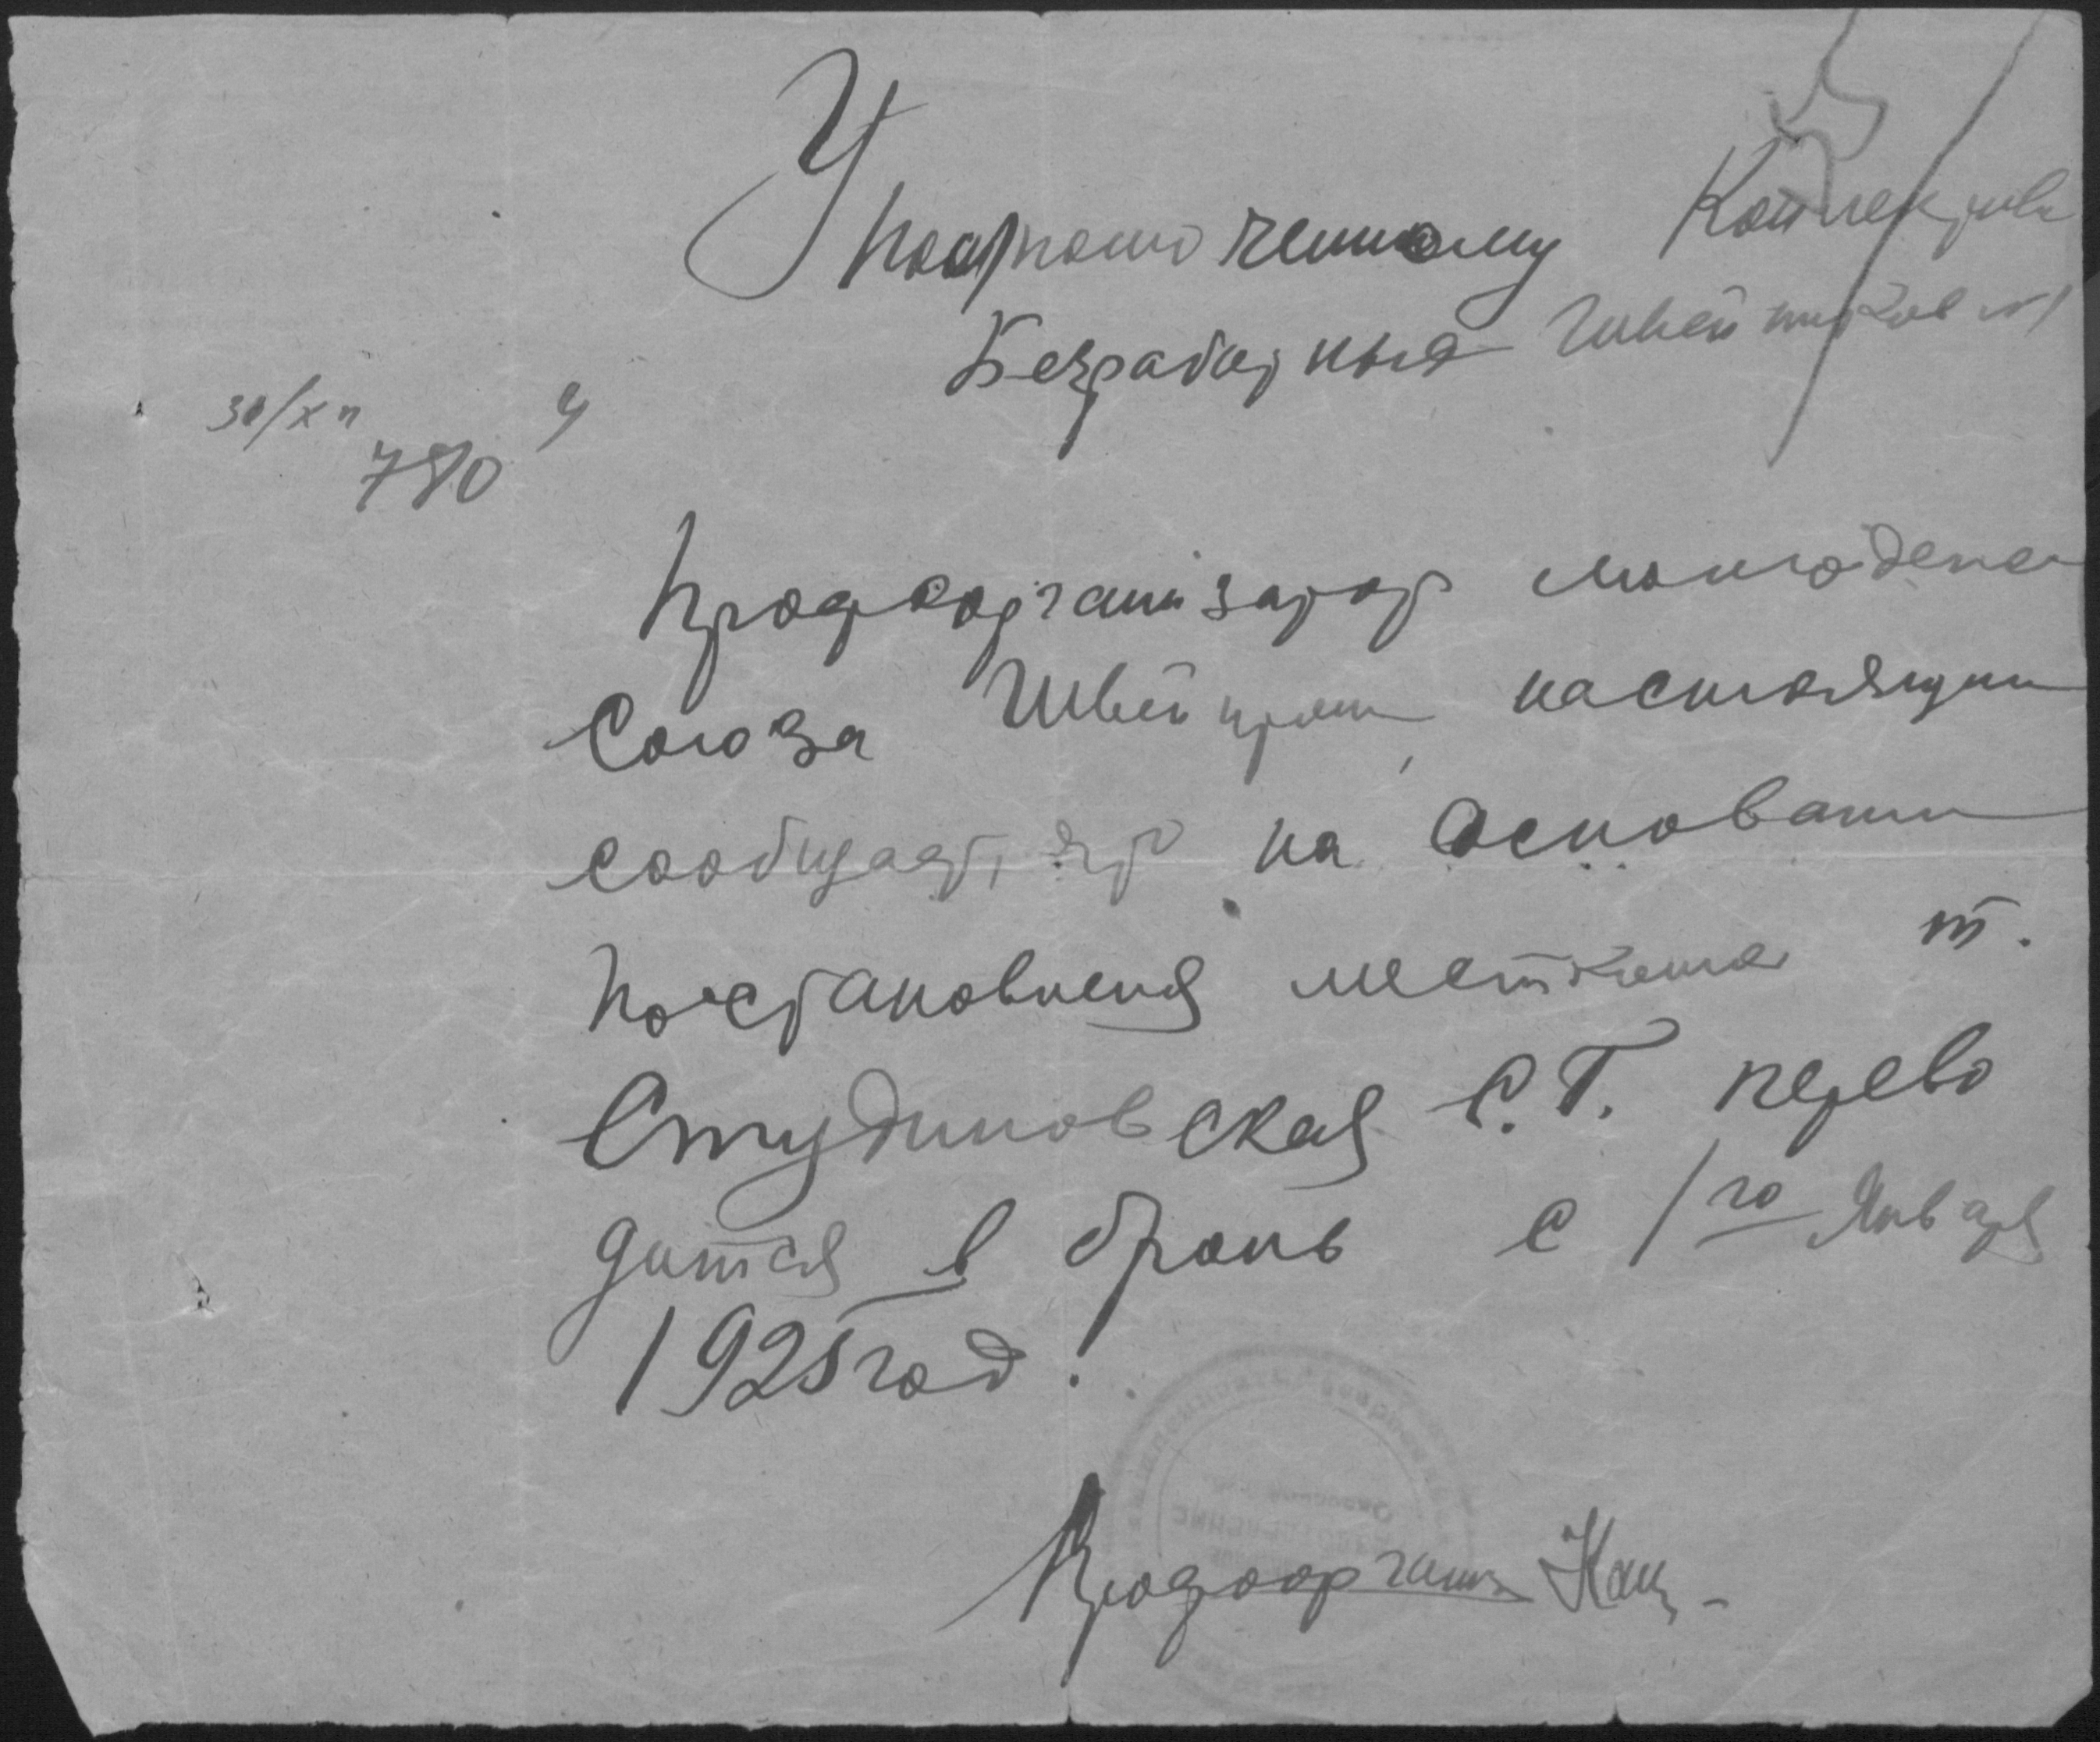 Уполномоченному Коллектива
Безработных Швейников №1
30/XII 4
780
Профорганизатор молодежи
Союза Швейпром настоящим
сообщает, что на основании
постановления месткома т.
Студиновская С.Т. перево
дится в бронь с 1го Января
1925 год.
Профорганиз Кац